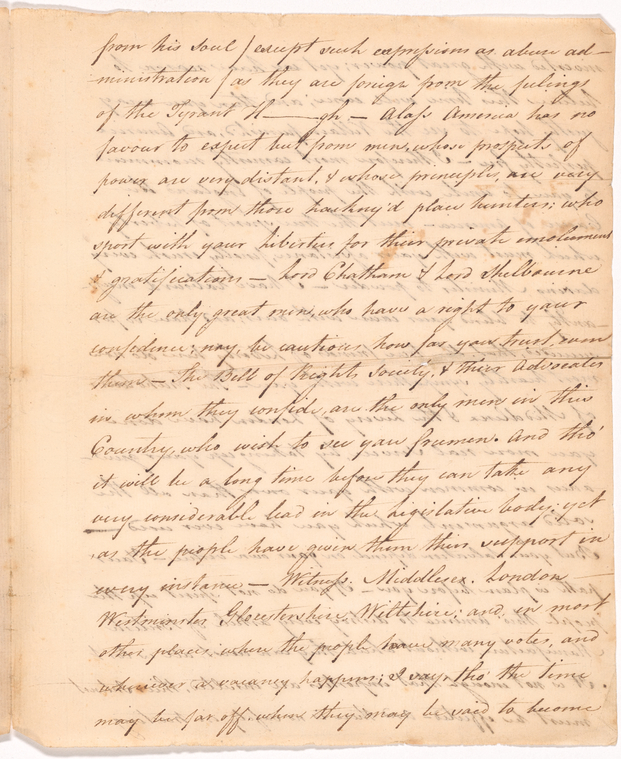 from his soul / except such expressions as abuse ad-
ministration / as they are foreign from the feelings
of the Tyrant H——gh — Alass America has no
favour to expect but from men, whose prospects of
power are very distant, & whose principles, are very
different from those hackny'd place hunters; who
sport with your Liberties for their private emolument
& gratifications — Lord Chatham & Lord Shelbourne
are the only great men, who have a right to your
confidence; nay, be cautious how far you trust, even
them — The Bill of Rights Society, & their Advocates
in whom they confide, are the only men in this
Country, who wish to see you freemen. And tho'
it will be a long time before they can take any
very considerable lead in the Legislative body; yet
as the people have given them their support in
every instance — Witness. Middlesex. London —
Westminster, Glocestershire, Wiltshire; and, in most
other places where the people have many votes, and
whenever a vacancy happens; I say, tho' the time
may be far off. when they may be said to become